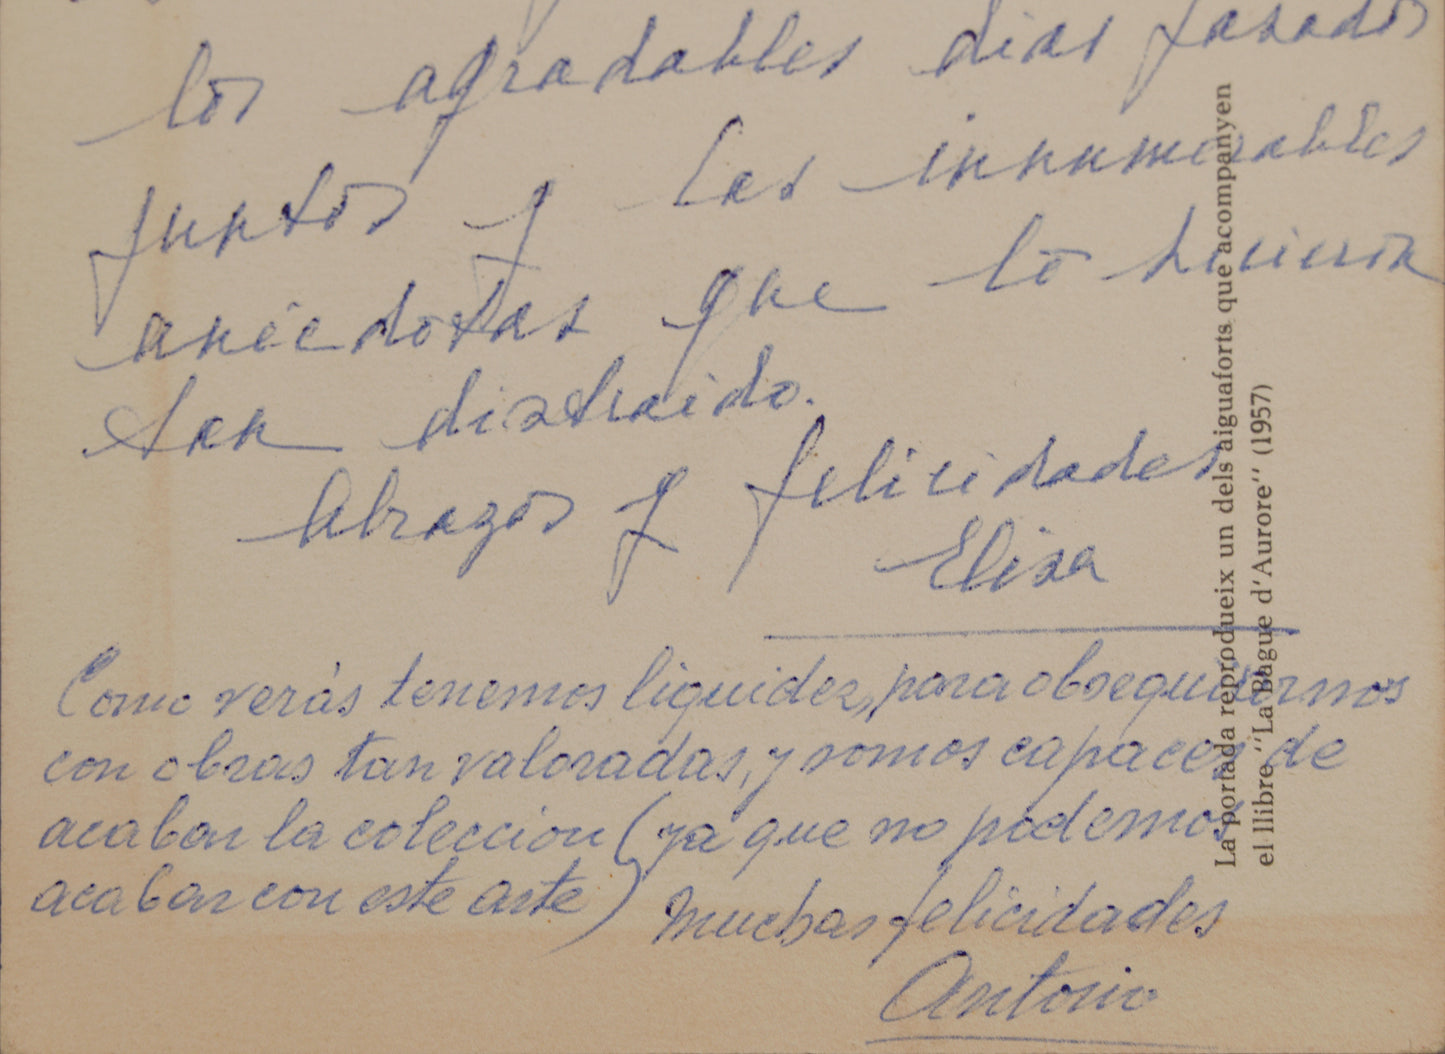 los agradables dias pasados
juntos y las innumerables
anécdotas que lo hicieron
tan distraido.
Abrazos y felicidades
Elisa
Como verás tenemos liquidez, para obsequiarnos
con obras tan valoradas, y somos capaces de
acabar la coleccion (ya que no podemos
acabar con este arte)
Muchas felicidades
Antonio
La portada reprodueix un dels aiguaforts que acompanyen
el llibre "La Bague d'Aurore" (1957)